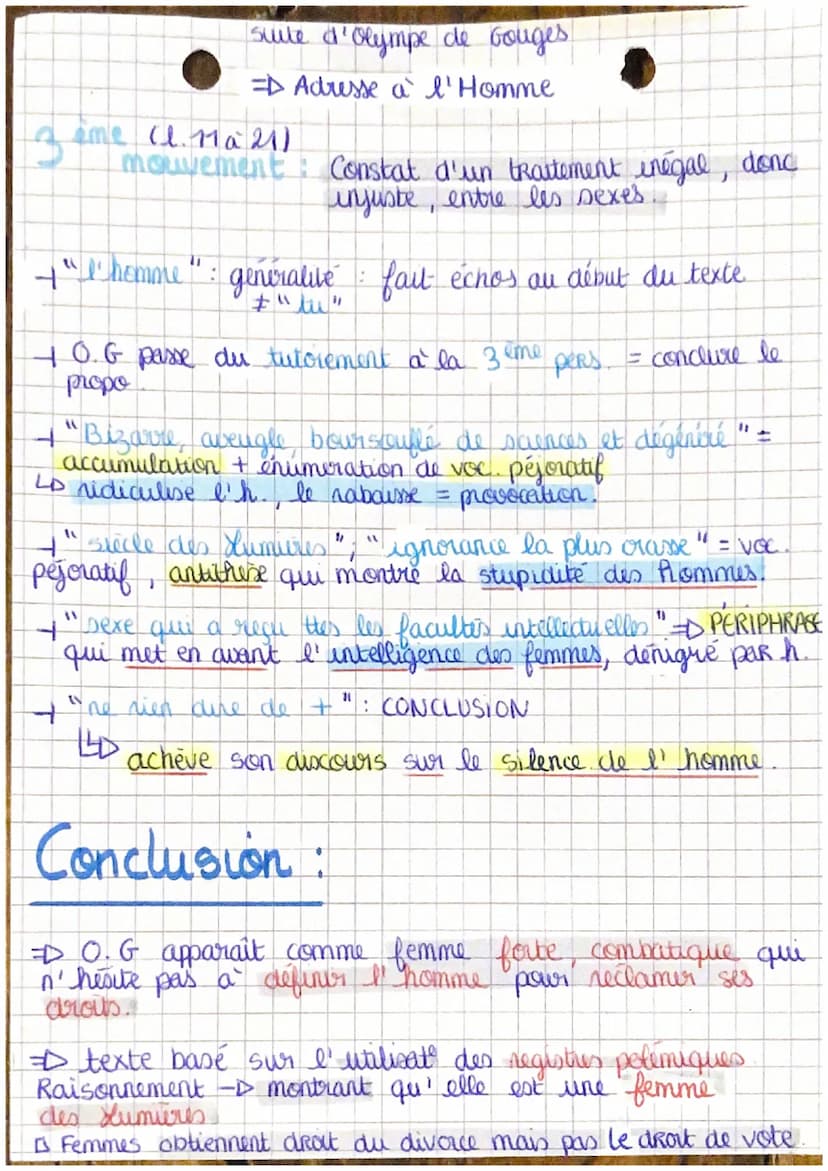 suite d'Olympe de Gouges
=> Adresse à l'Homme
3ème (l. 11 à 21)
mouvement : Constat d'un traitement inégal, donc
injuste, entre les sexes.
→ "l'homme" : généralité : fait échos au début du texte
≠ "tu"
→ O.G passe du tutoiement à la 3ème pers. = conclure le
propo
→ "Bizarre, aveugle, boursouflé de sciences et dégénéré" =
accumulation + énumération de voc. péjoratif
↳ ridiculise l'h., le rabaisse = provocation.
→ "siècle des Lumières" ; "ignorance la plus crasse" = voc.
péjoratif, antithèse qui montre la stupidité des Hommes.
→ "sexe qui a reçu ttes les facultés intellectuelles" => PÉRIPHRASE
qui met en avant l'intelligence des femmes, dénigré par h.
→ "ne rien dire de +" : CONCLUSION
↳ achève son discours sur le silence de l'homme.
Conclusion :
=> O.G apparaît comme femme forte, combatique qui
n'hésite pas à définir l'homme pour réclamer ses
droits.
=> texte basé sur l'utilisat° des registres polémiques.
Raisonnement → montrant qu'elle est une femme
des Lumières
▷ Femmes obtiennent droit du divorce mais pas le droit de vote.